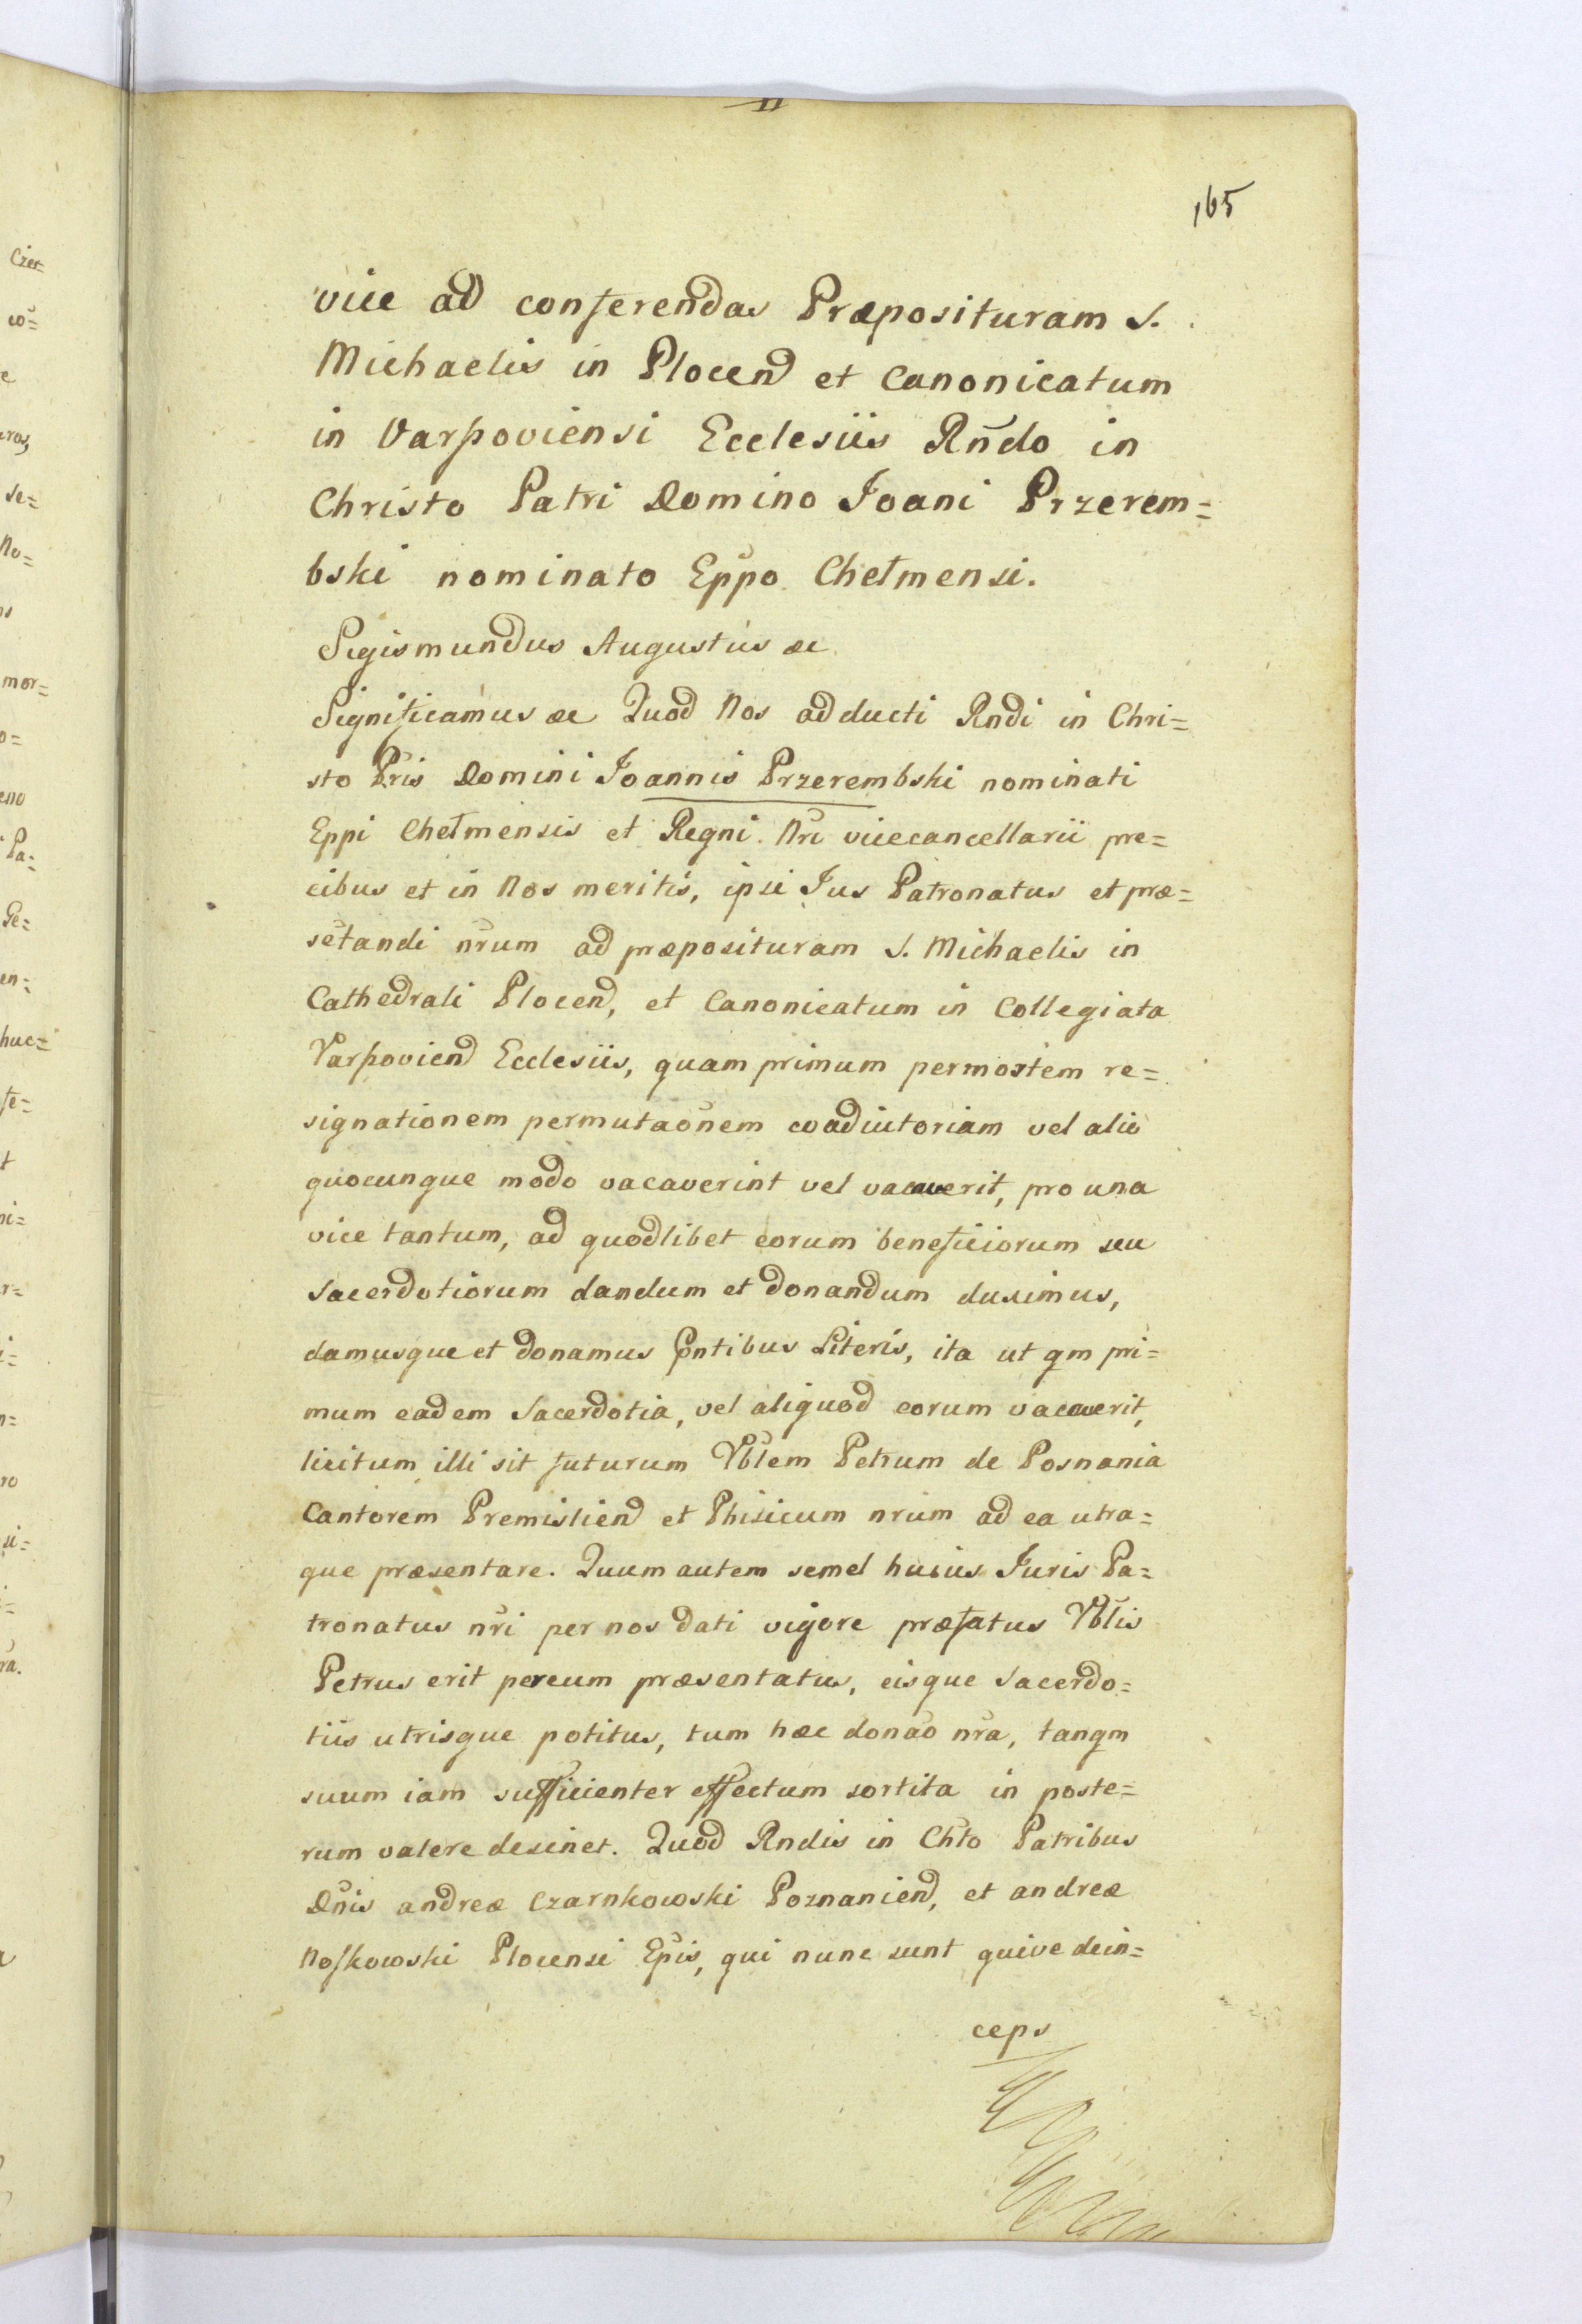 165
vice ad conferendas Præposituram S.
Michaelis in Plocen̄ et Canonicatum
in Varſzoviensi Ecclesiis Rn̄do in
Christo Patri Domino Joani Przerem=
bski nominato Epp̄o Chełmensi.
Sigismundus Augustus æc
Significamus æc Quod Nos adducti Rndi in Chri=
sto Pr̄is Domini Joannis Przerembski nominati
Eppi Chełmensis et Regni Nr̄i vicecancellarii pre=
cibus et in Nos meritis, ipsi Jus Patronatus et præ=
sēt​andi nr̄um ad præposituram S. Michaelis in
Cathedrali Plocen̄, et Canonicatum in Collegiata
Varſzovien̄ Ecclesiis, quam primum permortem re=
signationem permutaōnem coadiutoriam vel alio
quocunque modo vacaverint vel vacaverit, pro una
vice tantum, ad quodlibet eorum beneficiorum seu
Sacerdotiorum dandum et donandum duximus,
damusque et donamus pn̄tibus Literis, ita ut qm pri=
mum eadem Sacerdotia, vel aliquod eorum vacaverit,
licitum illi sit futurum Vbl̄em Petrum de Posnania
Cantorem Premislien̄ et Phisicum nrum ad ea utra=
que præsentare. Quum autem semel huius Juris Pa=
tronatus nr̄i per nos dati vigore præfatus Vbl̄is
Petrus erit pereum præsentatus, eisque Sacerdo=
tiis utrisque potitus, tum hæc donāo nr̄a, tanqm
suum iam sufficienter effectum sortita in poste=
rum valere desinet. Quod Rndis in Cht̄o Patribus
Dn̄is andreæ Czarnkowski Poznanien̄, et andreæ
Noſkowski Plocensi Ep̄is, qui nunc sunt quive dein=
ceps